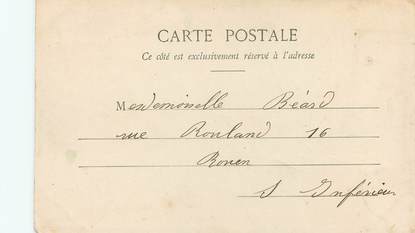 CARTE POSTALE
Ce côté est exclusivement réservé à l'adresse
Mademoiselle Béard
rue Rouland 16
Rouen
S Inférieure